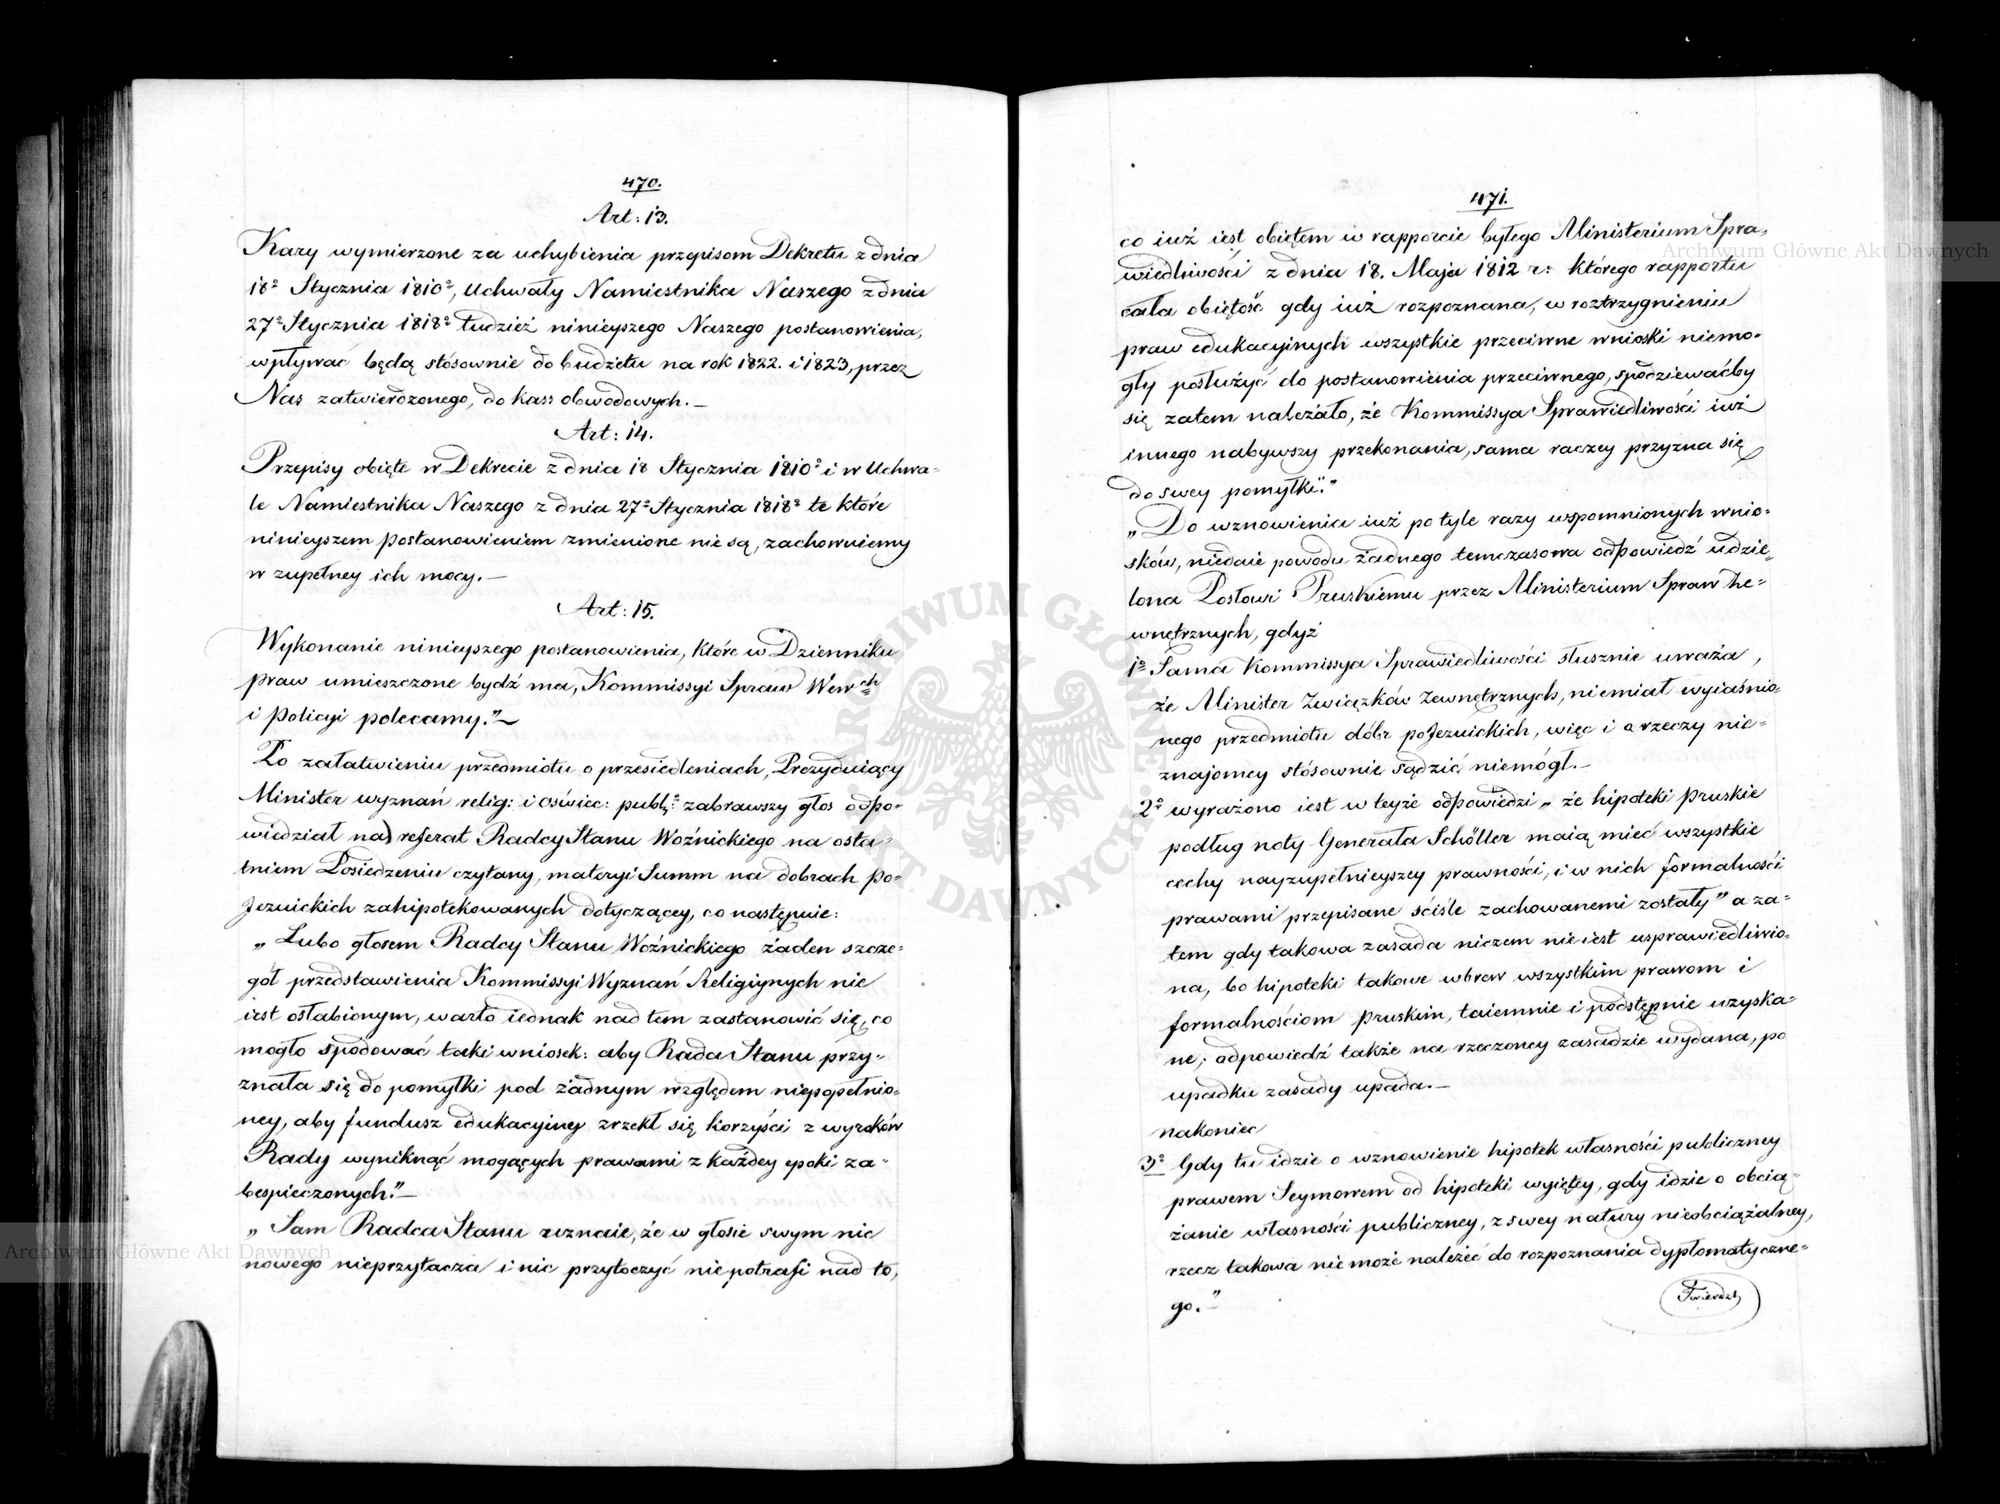 470.
Art: 13.
Kary wymierzone za uchybienia przepisom Dekretu z dnia
18º Stycznia 1810º, Uchwały Namiestnika Naszego z dnia
27º Stycznia 1818º tudzież ninieyszego Naszego postanowienia,
wpływać będą stósownie do budżetu na rok 1822. i 1823, przez
Nas zatwierdzonego, do kass obwodowych.—
Art: 14.
Przepisy obięte w Dekrecie z dnia 18 Stycznia 1810º i w Uchwa-
le Namiestnika Naszego z dnia 27º Stycznia 1818º te które
ninieyszem postanowieniem zmienione nie są, zachowuiemy
w zupełney ich mocy.—
Art: 15.
Wykonanie ninieyszego postanowienia, które w Dzienniku
praw umieszczone bydź ma, Kommissyi Spraw Wewch
i Policyi polecamy."—
Po załatwieniu przedmiotu o przesiedleniach, Prezyduiący
Minister wyznań relig: i oświec: publ: zabrawszy głos odpo-
wiedział na referat Radcy Stanu Woźnickiego na osta-
tniem Posiedzeniu czytany, materyi Summ na dobrach po-
Jezuickich zahipotekowanych dotyczącey, co następuie:
„Lubo głosem Radcy Stanu Woźnickiego żaden szcze-
gół przedstawienia Kommissyi Wyznań Religiynych nie
iest osłabionym, warto iednak nad tem zastanowić się, co
mogło spodować taki wniosek: aby Rada Stanu przy-
znała się do pomyłki pod żadnym względem niepopełnio-
ney, aby fundusz edukacyiney zrzekł się korzyści z wyroków
Rady wyniknąć mogących prawami z każdey epoki za-
bespieczonych."—
„Sam Radca Stanu uznaie, że w głosie swym nic
nowego nieprzytacza i nic przytoczyć nie potrafi nad to,
471.
co iuż iest obiętem w rapporcie byłego Ministerium Spra-
wiedliwości z dnia 18. Maja 1812 r: którego rapportu
cała obiętość gdy iuż rozpoznana, w roztrzygnieniu
praw edukacyinych wszystkie przeciwne wnioski niemo-
gły posłużyć do postanowienia przeciwnego, spodziewaćby
się zatem należało, że Kommissya Sprawiedliwości iuż
innego nabywszy przekonania, sama raczey przyzna się
do swey pomyłki."
„Do wznowienia iuż po tyle razy wspomnionych wnio-
sków, niedaie powodu żadnego temczasowa odpowiedź udzie-
lona Posłowi Pruskiemu przez Ministerium Spraw Ze-
wnętrznych, gdyż
1º Sama Kommissya Sprawiedliwości słusznie uważa,
że Minister Związków Zewnętrznych, niemiał wyiaśnio-
nego przedmiotu dóbr poJezuickich, więc i o rzeczy nie-
znajomey stósownie sądzić niemógł.—
2º wyrażono iest w teyże odpowiedzi „że hipoteki pruskie
podług noty Generała Schöller maią mieć wszystkie
cechy nayzupełnieyszey prawności, i w nich formalności
prawami przepisane ściśle zachowanemi zostały" a za-
tem gdy takowa zasada niczem nie iest usprawiedliwio-
na, bo hipoteki takowe wbrew wszystkim prawom i
formalnościom pruskim, taiemnie i podstępnie uzyska-
ne; odpowiedź także na rzeczoney zasadzie wydana, po
upadku zasady upada.—
nakoniec
3º Gdy tu idzie o wznowienie hipotek własności publiczney
prawem Seymowem od hipoteki wyiętey, gdy idzie o obcią-
żanie własności publiczney, z swey natury nieobciążalney,
rzecz takowa nie może należeć do rozpoznania dyplomatyczne-
go."—
Twierdzą
Archiwum Główne Akt Dawnych
Archiwum Główne Akt Dawnych
ARCHIWUM GŁÓWNE AKT DAWNYCH